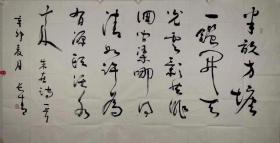 半畝方塘
一鑑開天
光雲影共徘
徊問渠哪得
清如許為
有源頭活水
來 朱熹詩一首
辛卯夏月